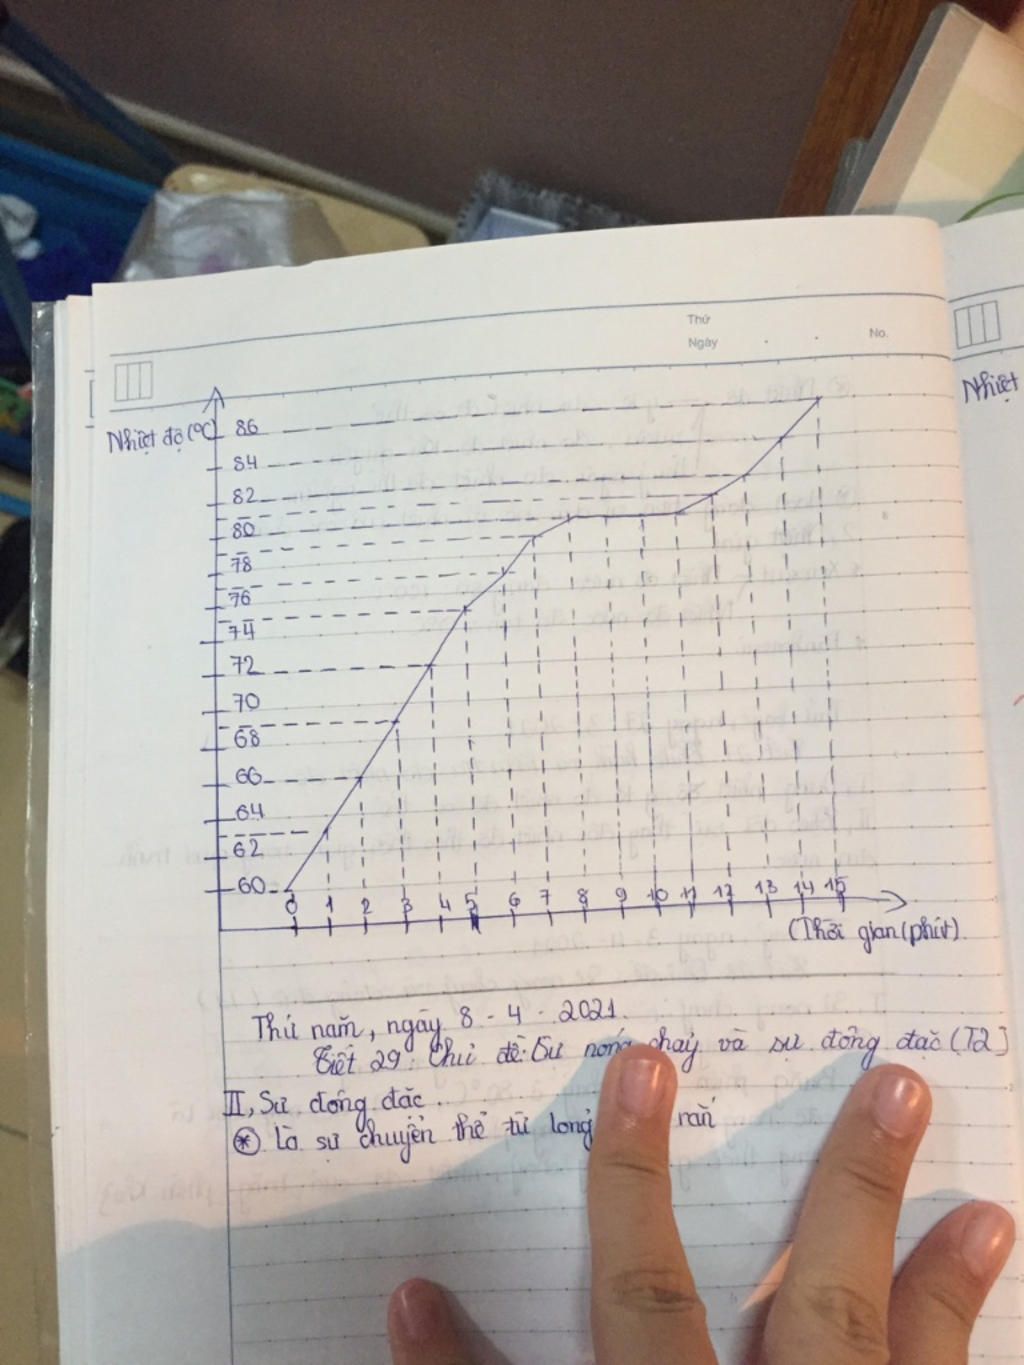 Thứ
Ngày
No.
Nhiệt
Nhiệt độ (°C)
86
84
82
80
78
76
74
72
70
68
66
64
62
60
0 1 2 3 4 5 6 7 8 9 10 11 12 13 14 15
(Thời gian (phút)
Thứ năm, ngày 8 - 4 - 2021.
Tiết 29: Chủ đề: Sự nóng chảy và sự đông đặc (T2)
II, Sự đông đặc
* Là sự chuyển thể từ lỏng rắn